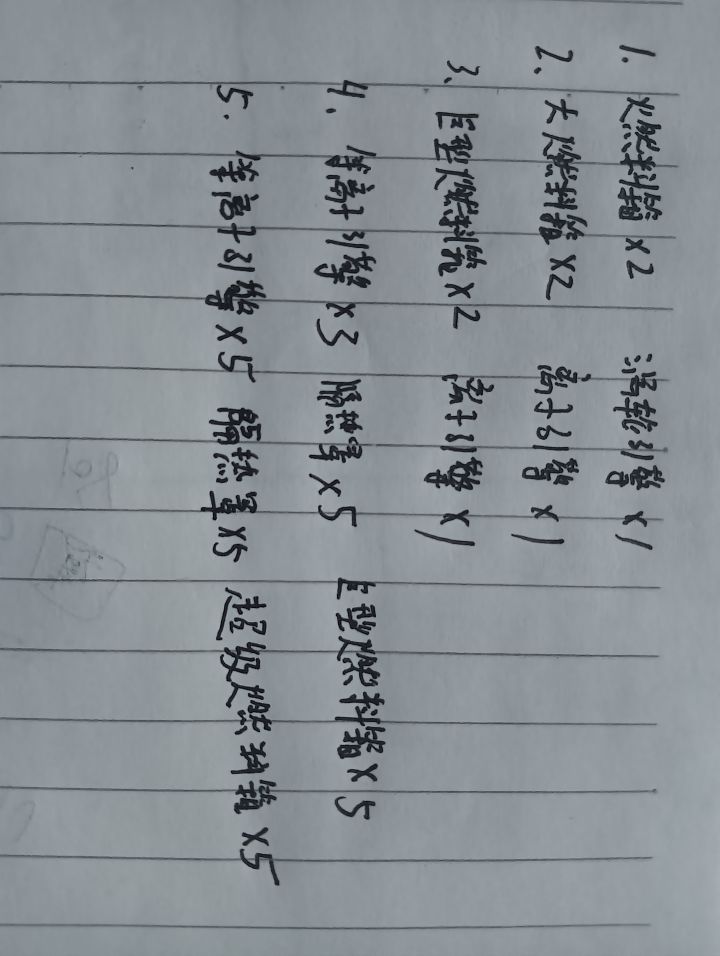 1. 燃料箱 x2 涡轮引擎 x1
2、大燃料箱 x2 离子引擎 x1
3、巨型燃料箱 x2 离子引擎 x1
4、等离子引擎 x3 隔热罩 x5 巨型燃料箱 x5
5. 等离子引擎 x5 隔热罩 x5 超级燃料箱 x5